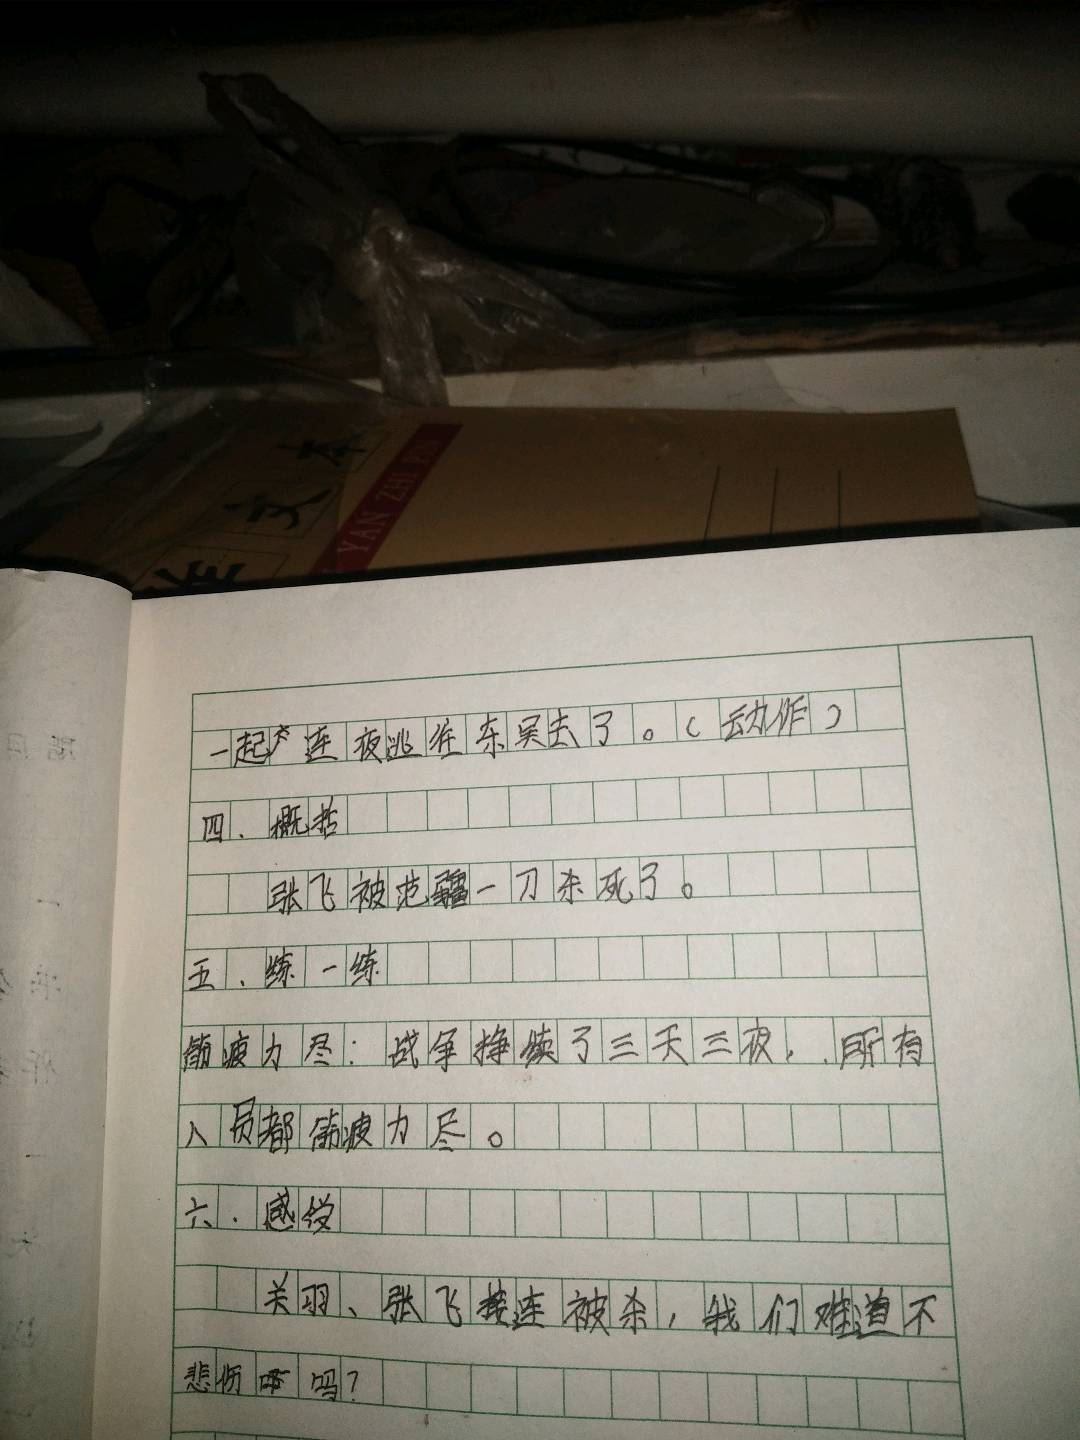 作文本
YAN ZHI PIN
一起连夜逃往东吴去了。(动作)
四.概括
张飞被范疆一刀杀死了。
五.练一练
筋疲力尽:战争挣续了三天三夜,所有
人员都筋疲力尽。
六.感受
关羽、张飞接连被杀,我们难道不
悲伤吗?